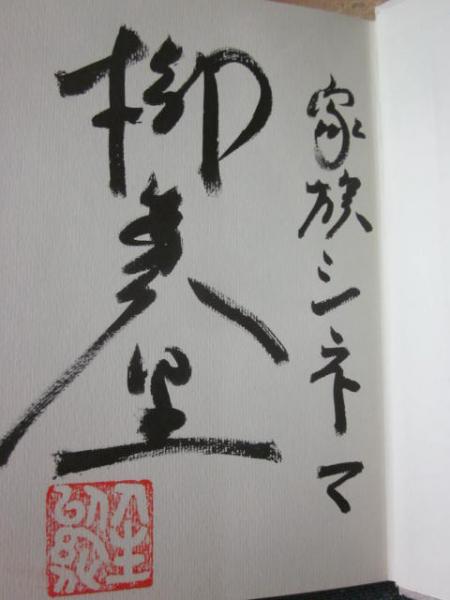 家族シネマ
柳美里